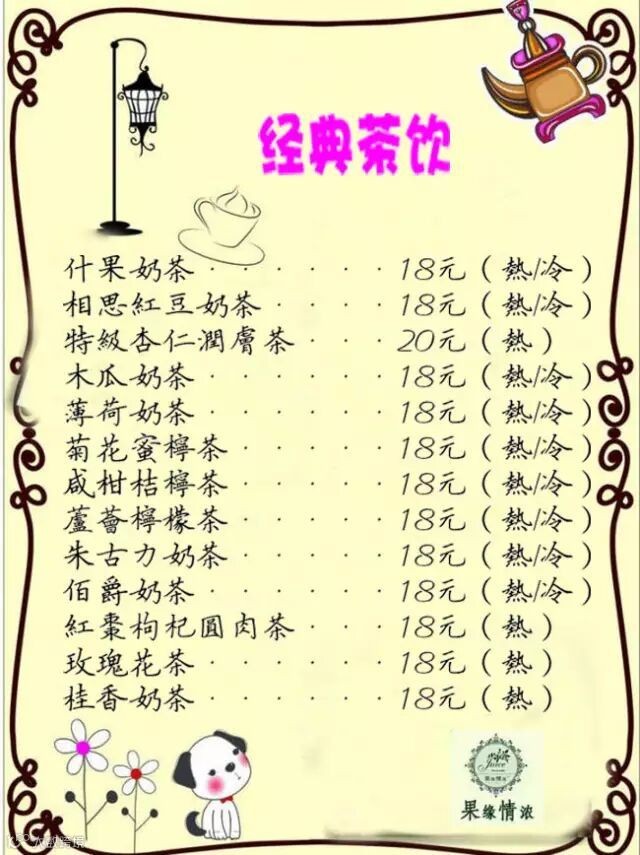 经典茶饮
什果奶茶 · · · · · · 18元（熱/冷）
相思紅豆奶茶 · · · · 18元（熱/冷）
特級杏仁潤膚茶 · · · 20元（熱）
木瓜奶茶 · · · · · · 18元（熱/冷）
薄荷奶茶 · · · · · · 18元（熱/冷）
菊花蜜檸茶 · · · · · 18元（熱/冷）
咸柑桔檸茶 · · · · · 18元（熱/冷）
蘆薈檸檬茶 · · · · · 18元（熱/冷）
朱古力奶茶 · · · · · 18元（熱/冷）
伯爵奶茶 · · · · · · 18元（熱/冷）
紅棗枸杞圓肉茶 · · · 18元（熱）
玫瑰花茶 · · · · · · 18元（熱）
桂香奶茶 · · · · · · 18元（熱）
Juice
果缘情浓